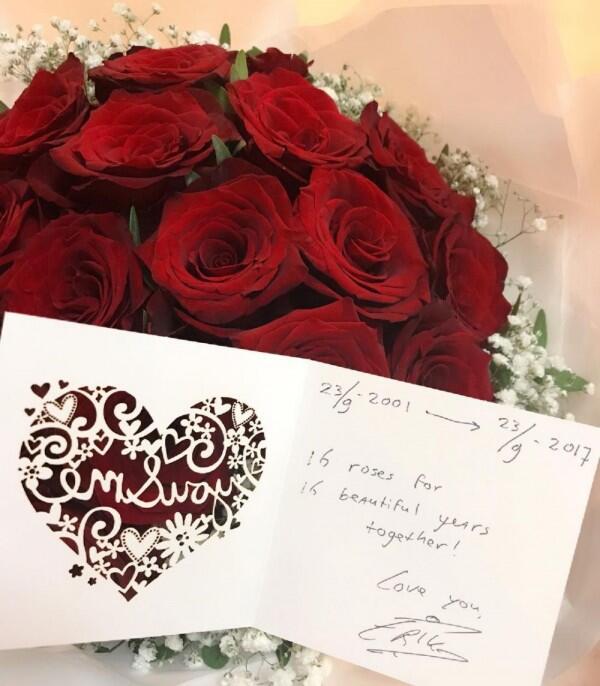 23/9-2001 → 23/9-2017
16 roses for
16 beautiful years
together!
Love you,
ERIK